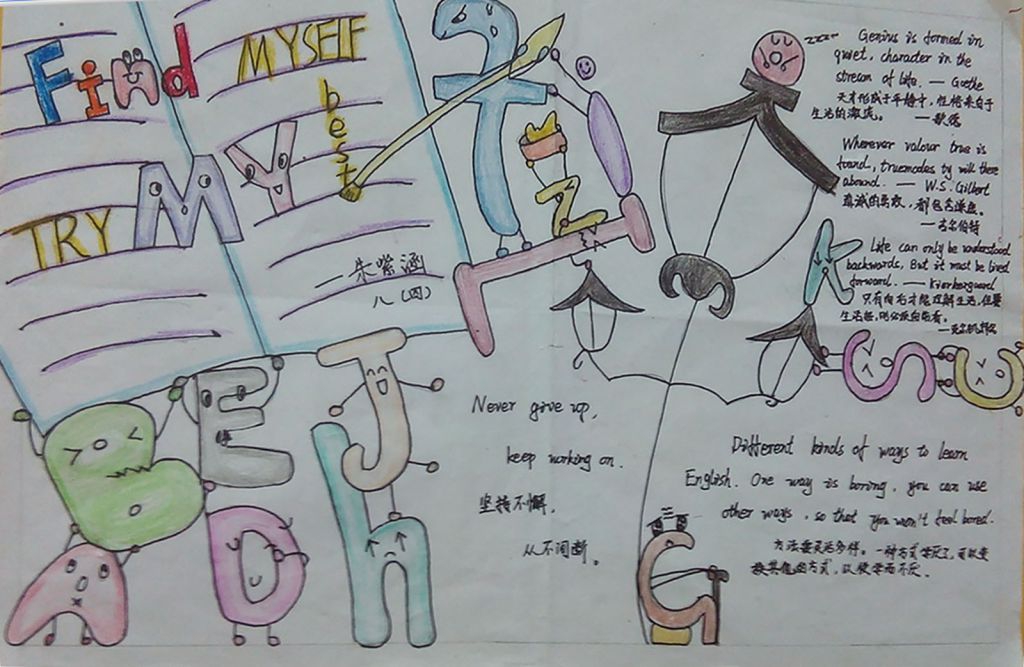 Find
MYSELF
best
TRY MY
朱紫涵
八(四)
Never give up,
keep working on.
坚持不懈,
从不间断。
Genius is formed in
quiet, character in the
stream of life. — Goethe
天才形成于平静中,性格来自于
生活的激流。 — 歌德
Wherever valour true is
found, truemodes ty will there
abound. — W.S. Gilbert
真诚的勇敢,都包含谦虚。
— 吉尔伯特
Life can only be understood
backwards, But it must be lived
forward. — Kierkergaard
只有向右才能理解生活,但要
生活
Different kinds of ways to learn
English. One way is boring, you can use
other ways, so that you won't feel bored.
方法要灵活多样。一种方式学厌了,可以变
换其他的方式,以使学而不厌。
t
Z
I
K
S
U
B
E
J
A
O
h
G